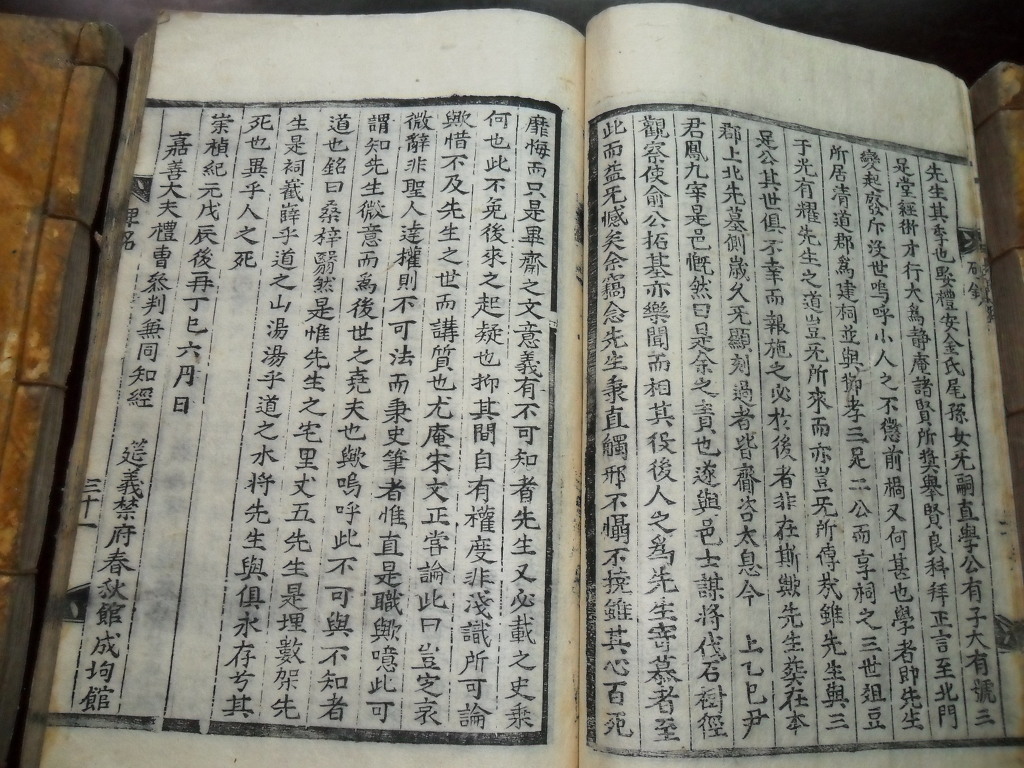 先生其季也娶禮安金氏尾孫女旡嗣直學公有子大有號三
是堂經術才行大爲靜庵諸賢所奬擧賢良科拜正言至北門
變起廢斥沒世嗚呼小人之不懲前禍又何甚也學者卽先生
所居淸道郡爲建祠並與節孝三足二公而享祠之三世俎豆
于光有耀先生之道豈旡所來而亦豈旡所傳哉雖先生與三
足公其世俱不幸而報施之必於後者非在斯歟先生葬在本
郡上北先墓側歲久旡顯刻過者皆齎咨太息今 上乙巳尹
君鳳九宰是邑慨然曰是余之責也遂與邑士謀將伐石樹徑
觀察使兪公拓基亦樂聞而相其役後人之爲先生寄慕者至
此而益旡憾矣余竊念先生秉直觸邪不懾不撓雖其心百死
靡悔而只是畢齋之文意義有不可知者先生又必載之史乘
何也此不免後來之起疑也抑其間自有權度非淺識所可論
歟惜不及先生之世而講質也尤庵宋文正嘗論此曰豈定哀
微辭非聖人達權則不可法而秉史筆者惟直是職歟噫此可
謂知先生微意而爲後世之堯夫也歟嗚呼此不可與不知者
道也銘曰桑梓翳然是惟先生之宅里丈五先生是埋數架先
生是祠巀嶭乎道之山湯湯乎道之水將先生與俱永存兮其
死也異乎人之死
崇禎紀元戊辰後再丁巳六月日
嘉善大夫禮曹參判兼同知經 筵義禁府春秋館成均館
碑銘
三十一